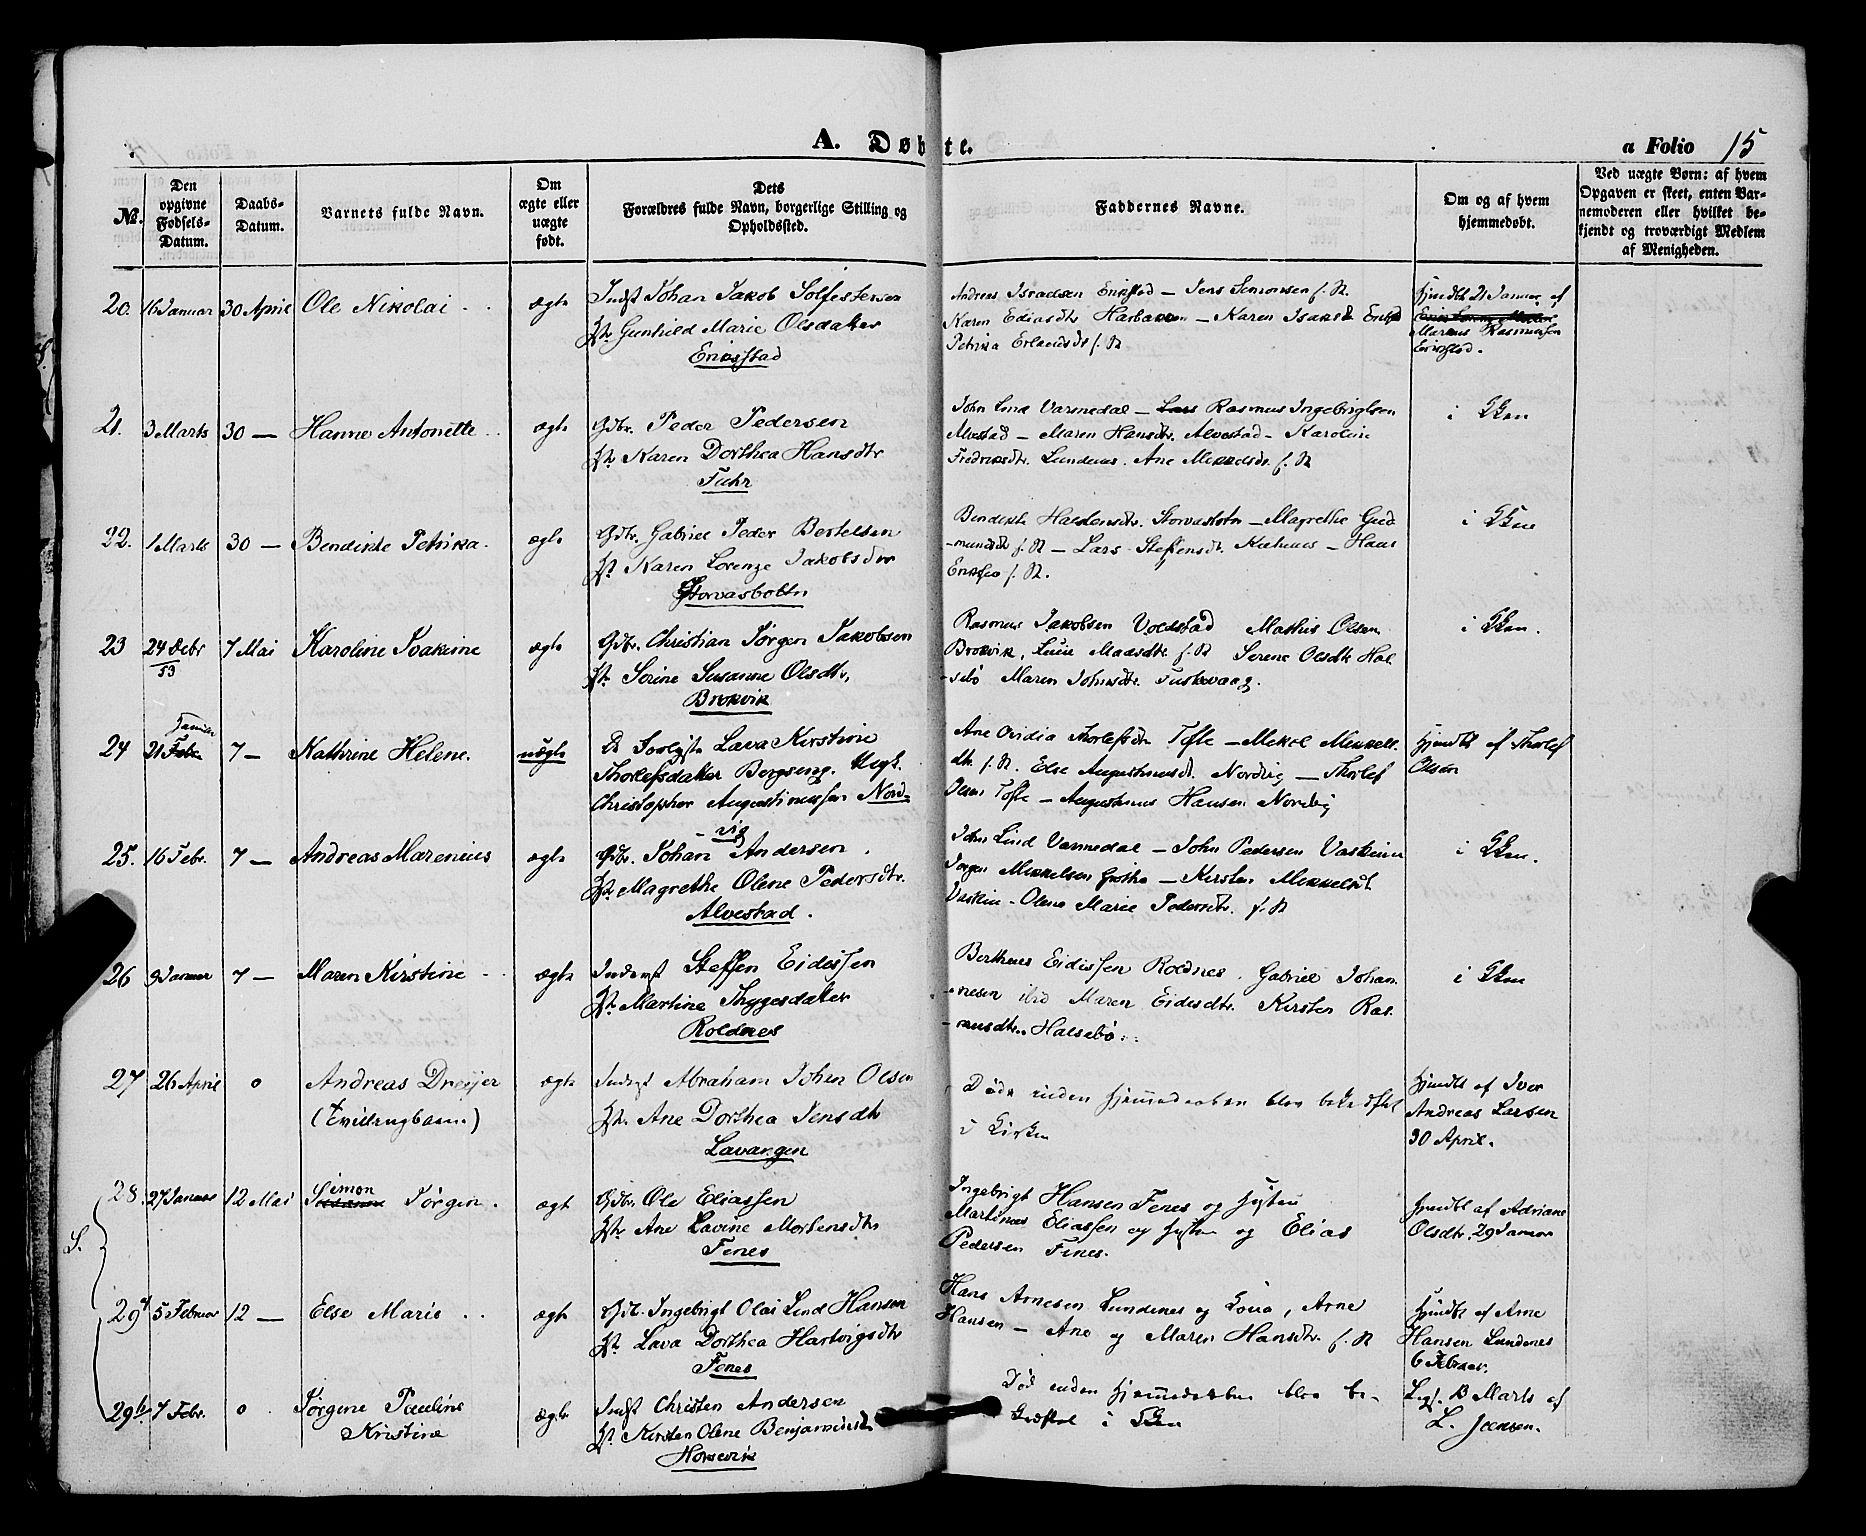 A. Døbte.
a Folio 15
No.
Den opgivne Fødsels-Datum.
Daabs-Datum.
Varnets fulde Navn.
Om ægte eller uægte født.
Dets Forældres fulde Navn, borgerlige Stilling og Opholdssted.
Faddernes Navne.
Om og af hvem hjemmedøbt.
Ved uægte Børn: af hvem Opgaven er skeet, enten Barnemoderen eller hvilket bekjendt og troværdigt Medlem af Menigheden.
20. 16 Januar 30 April Ole Nikolai ægte
Indst Johan Jakob
Gunhild Marie Olsdatter
Erikstad
Andreas Israelsen Erikstad — Jens Simonsen f. St.
Karen Ediasdtr — Karen Isaksdtr
Petrika Erlandsdtr f. St
Hjmdbt 21 Januar af
Marius Rasmussen
Erikstad.
21. 3 Marts 30 — Hanne Antonette ægte
Gdbr. Peder Pedersen
Karen Dorthea Hansdtr
Fuhr
John Lind Varmedal — Lars Rasmus Ingebrigtsen
Alvestad — Maren Hansdtr. Alvestad — Karoline
Fredriksdtr. Lundenes. Ane Mikkelsdtr. f. St
i Kken
22. 1 Marts 30 — Bendikte Petrika ægte
Gdbr. Gabriel Peder Bertelsen
Karen Lorenze Jakobsdtr
Storvasbottn
Bendikte Storvasbotn — Magrethe Gud
-mundsdtr f. St — Lars Steffensdtr. — Hans
Eriksen f. St.
i Kken
23 24 Debr 53 7 Mai Karoline Joakime ægte
Gdbr. Christian Jørgen Jakobsen
Sørine Susanne Olsdtr.
Brokvik
Rasmus Jakobsen Voldstad Mathis Olsen
Brokvik, Madsdtr f. St Serene Olsdtr Hal
-sebø Maren Johnsdtr. Fuskevaag.
i Kken.
24 21 Januar 7 — Kathrine Helene. uægte
Lava Kirstine
Thorlefsdatter Bergseng. Ungk.
Christopher Augustinussen Nord-
vig
Ane Ovidia Thorlefsdtr Tofte — Mekol Mikkels
dtr f. St. Else Augustinusdt. Nordvig — Thorlef
Olsen Tofte — Augustinus Hansen Nordvig
Hjmdbt af Thorlef
Olsen
25. 16 Febr. 7 — Andreas Marenius ægte
Gdbr. Johan Andersen
Magrethe Olene Pedersdtr.
Alvestad.
John Lind Varmedal — John Pedersen Vaskinn
Jørgen Mikkelsen — Kirsten Mikkelsdt
Vaskinn — Olena Marie Pedersdtr. f. St
i Kken.
26 9 Januar 7 — Maren Kirstine ægte
Steffen Eidissen
Martine Thygesdatter
Roldnes
Bertheus Eidissen Roldnes. Gabriel Johan
-nesen ibid Maren Eidesdtr. Kirsten Ras
-musdtr. Halsebø.
i Kken
27 26 April 0 Andreas Dreyer
(Tvillingbarn)
ægte
Indst Abraham John Olsen
Ane Dorthea Jensdtr
Lavangen
Døde inden Hjemmedaaben blev bekræftet
i Kirken
Hjmdbt af Iver
Andreas Larsen
30 April.
28. 27 Januar 12 Mai Simon Jørgen. ægte
Gdbr. Ole Eliassen
Ane Lavine Mortensdtr
Fenes
Ingebrigt Hansen Fenes og Hustru
Martinus Eliassen og Hustru og Elias
Pedersen Fenes.
Hjmdbt af Adriane
Olsdtr. 29 Januar
S.
29a 5 Februar 12 — Else Marie ægte
Gdb. Ingebrigt Olai Lind Hansen
Lava Dorthea Hartvigsdtr
Fenes
Hans Arnesen Lundenes og Kona, Arne
Hansen — Ane og Maren Hansdtr. f. St
Hjmdbt af Arne
Hansen Lundenes
6 Februar.
29b 7 Febr. 0 Jørgine Pauline
Kristine
ægte
Indst Christen Andersen
Kirsten Olene Benjaminsdt
Horsevik
Død inden Hjemmedaaben blev be-
kræftet i Kken
13 Marts af
L. Jensen.